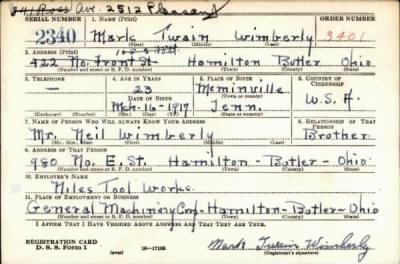 841 Ross Ave. 2512 Pleasant
SERIAL NUMBER 1. NAME (Print) ORDER NUMBER
2340 Mark Twain Wimberly 3401
(First) (Middle) (Last)
2. ADDRESS (Print)
422 No. Front St. Hamilton Butler Ohio
(Number and street or R. F. D. number) (Town) (County) (State)
3. TELEPHONE 4. AGE IN YEARS 5. PLACE OF BIRTH 6. COUNTRY OF CITIZENSHIP
— 23 Meminville
DATE OF BIRTH (Town or county)
Mch-16-1917 Tenn. U.S.A.
(Exchange) (Number) (Mo.) (Day) (Yr.) (State or country)
7. NAME OF PERSON WHO WILL ALWAYS KNOW YOUR ADDRESS 8. RELATIONSHIP OF THAT PERSON
Mr. Neil Wimberly Brother
(Mr., Mrs., Miss) (First) (Middle) (Last)
9. ADDRESS OF THAT PERSON
980 No. E. St. Hamilton-Butler-Ohio
(Number and street or R. F. D. number) (Town) (County) (State)
10. EMPLOYER'S NAME
Niles Tool Works
11. PLACE OF EMPLOYMENT OR BUSINESS
General Machinery Corp-Hamilton-Butler-Ohio
(Number and street or R. F. D. number) (Town) (County) (State)
I AFFIRM THAT I HAVE VERIFIED ABOVE ANSWERS AND THAT THEY ARE TRUE.
REGISTRATION CARD
D. S. S. Form 1 (over) 16—17105
Mark Twain Wimberly
(Registrant's signature)